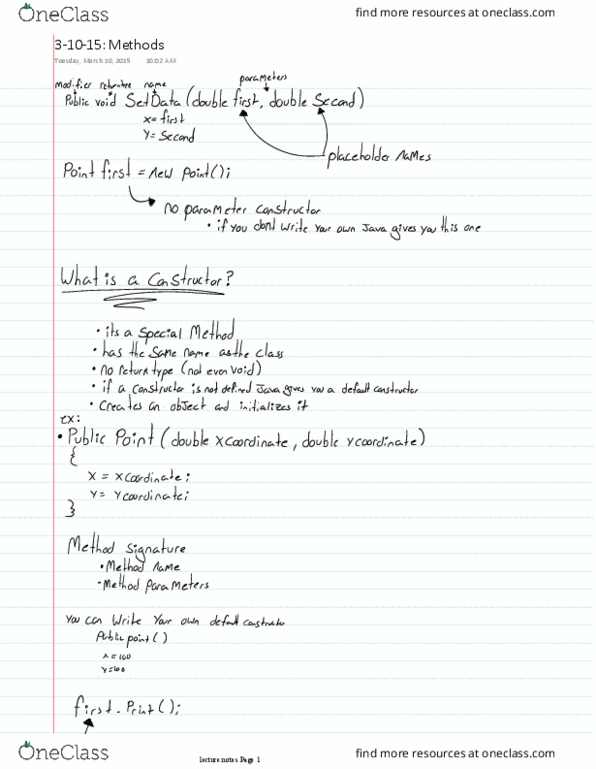 OneClass
find more resources at oneclass.com
3-10-15: Methods
Tuesday, March 10, 2015 10:02 AM
parameters
modifier name
Public void SetData (double first, double Second)
x= first
Y= Second
placeholder names
Point first = new point();
no parameter constructor
• if you dont write your own Java gives you this one
What is a Constructor?
• its a Special Method
• has the same name as the class
• no return type (not even void)
• if a constructor is not defined Java gives you a default constructor
• Creates an object and initializes it
ex:
• Public Point (double xcoordinate, double ycoordinate)
{
X = xcoordinate;
Y = Ycoordinate;
}
Method Signature
• Method name
• Method Parameters
You can write your own default constructor
Public point()
x=100
Y=100
first.Print();
OneClass
lecture notes Page 1
find more resources at oneclass.com